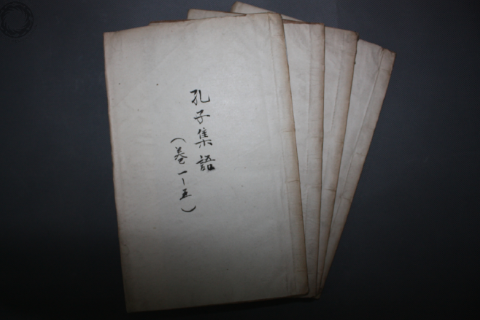 孔子集語
（卷一－五）